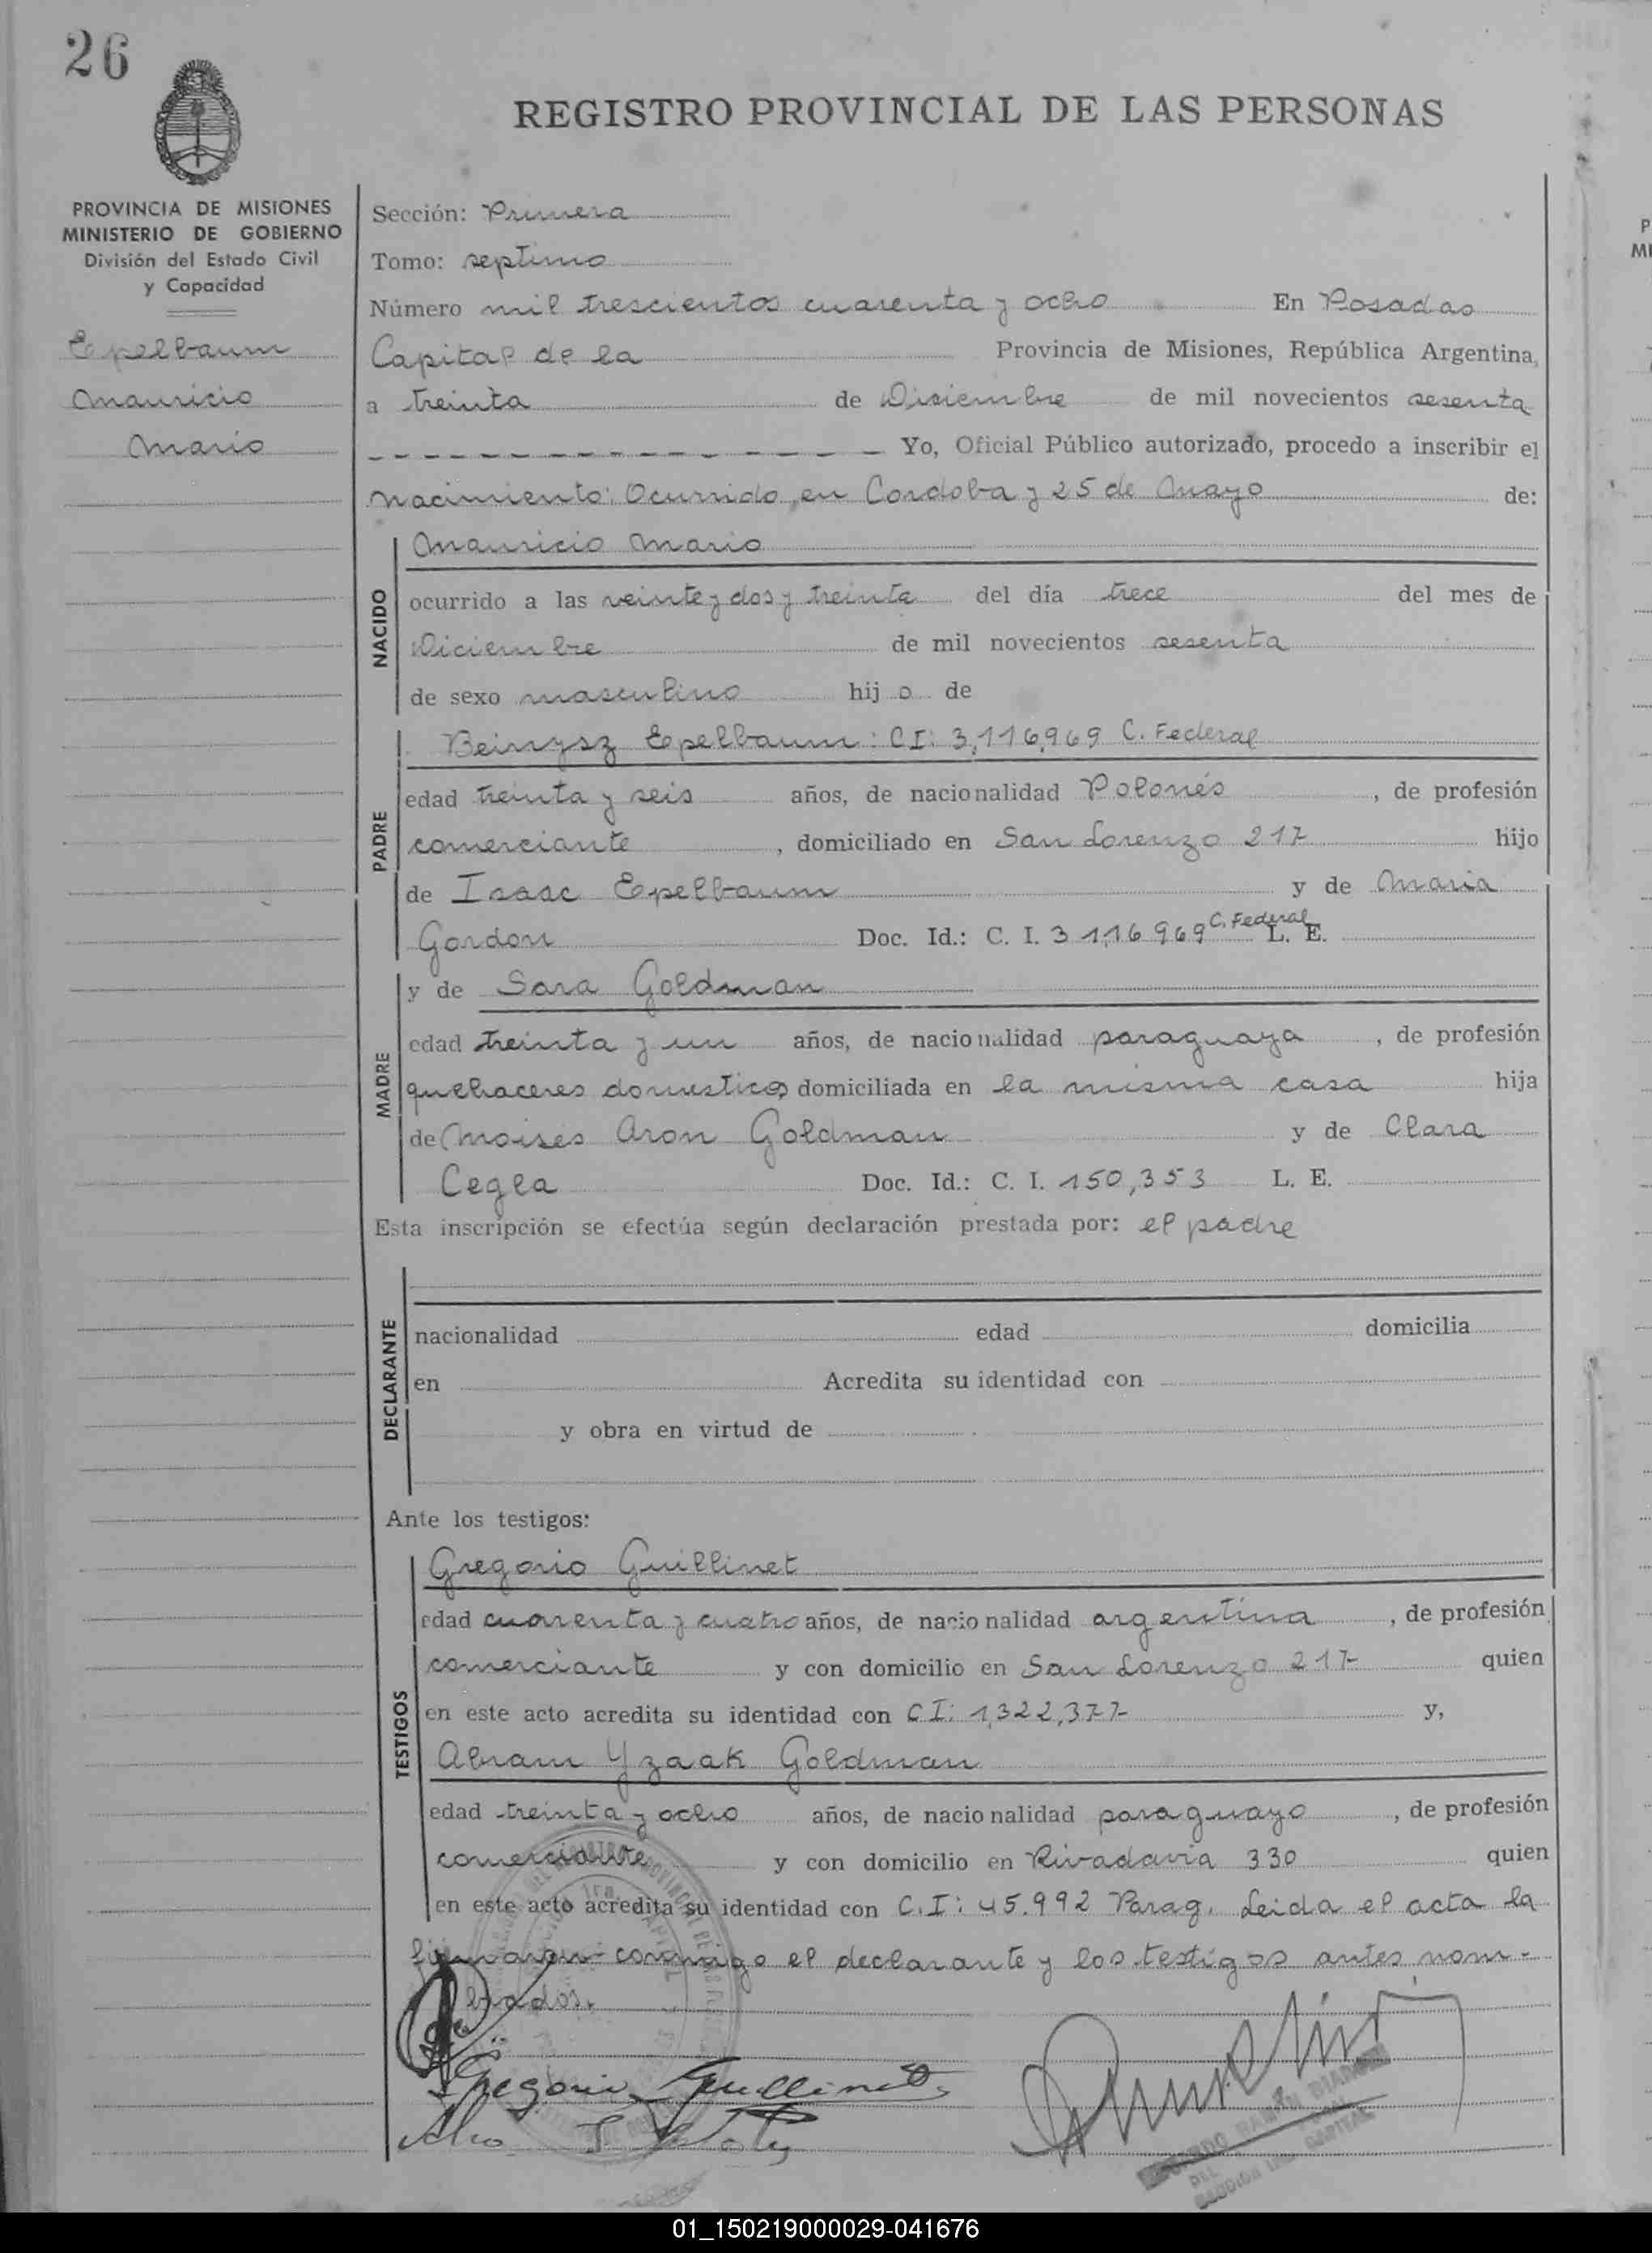 26
REGISTRO PROVINCIAL DE LAS PERSONAS
PROVINCIA DE MISIONES
MINISTERIO DE GOBIERNO
División del Estado Civil
y Capacidad
Epelbaum
Mauricio
Mario
Sección: Primera
Tomo: septimo
Número mil trescientos cuarenta y ocho En Posadas
Capital de la Provincia de Misiones, República Argentina,
a treinta de Diciembre de mil novecientos sesenta
Yo, Oficial Público autorizado, procedo a inscribir el
nacimiento: Ocurrido en Cordoba y 25 de Mayo de:
NACIDO
Mauricio Mario
ocurrido a las veinte y dos y treinta del día trece del mes de
Diciembre de mil novecientos sesenta
de sexo masculino hij o de
PADRE
Beinysz Epelbaum: CI: 3,116,969 C. Federal
edad treinta y seis años, de nacionalidad Polonés, de profesión
comerciante, domiciliado en San Lorenzo 217 hijo
de Isaac Epelbaum y de Maria
Gordon Doc. Id.: C. I. 3 1,16 969 C. Federal L. E.
MADRE
y de Sara Goldman
edad treinta y un años, de nacionalidad paraguaya, de profesión
quehaceres domesticos domiciliada en la misma casa hija
de Moises Aron Goldman y de Clara
Cegla Doc. Id.: C. I. 150,353 L. E.
Esta inscripción se efectúa según declaración prestada por: el padre
DECLARANTE
nacionalidad edad domicilia
en Acredita su identidad con
y obra en virtud de
Ante los testigos:
TESTIGOS
Gregorio Guillinet
edad cuarenta y cuatro años, de nacionalidad argentina, de profesión
comerciante y con domicilio en San Lorenzo 217 quien
en este acto acredita su identidad con CI: 1,322,377 y,
Abram Yzaak Goldman
edad treinta y ocho años, de nacionalidad paraguayo, de profesión
comerciante y con domicilio en Rivadavia 330 quien
en este acto acredita su identidad con C.I: 45.992 Parag. Leida el acta la
firmaron conmigo el declarante y los testigos antes nom-
brados.
Gregorio Guillinet
01_150219000029-041676